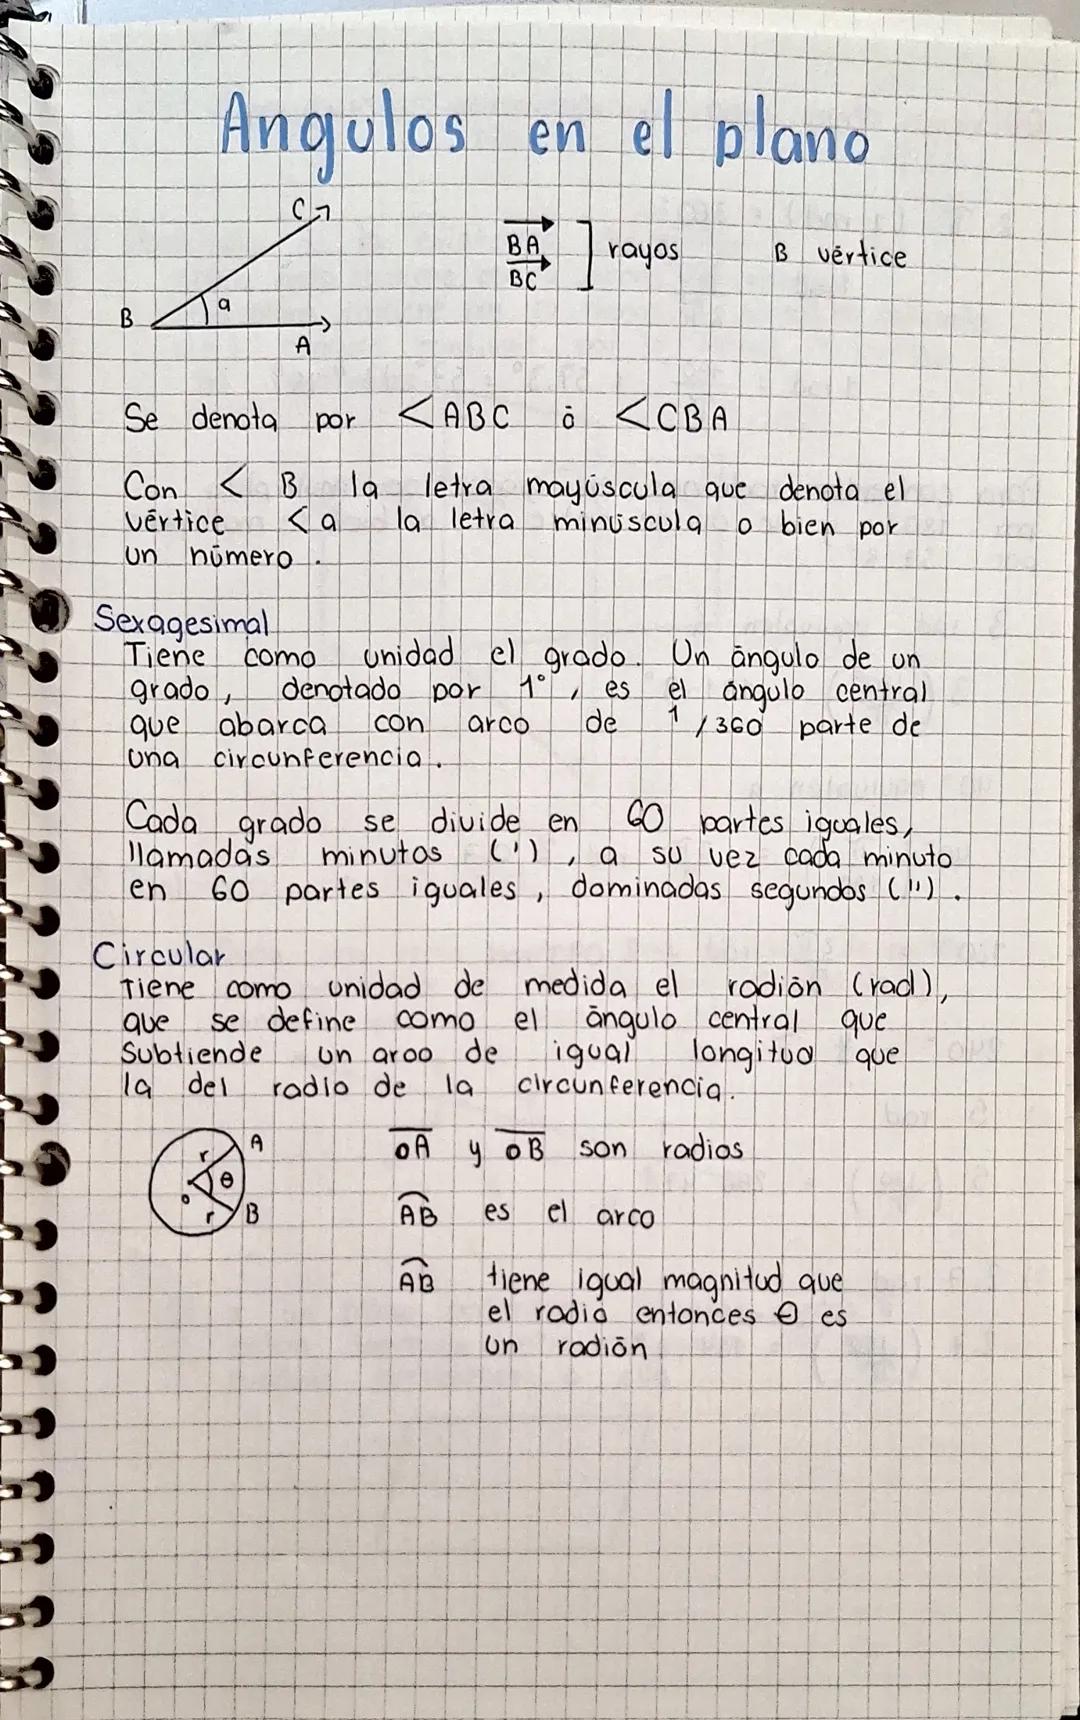 Angulos en el plano
C
B a
A
BA
BC
rayos B vértice
Se denota por <ABC ó <CBA
Con < B la letra mayúscula que denota el
vértice <a la letra minúscula o bien por
un número.
Sexagesimal
Tiene como unidad el grado. Un ángulo de un
grado, denotado por 1°, es el ángulo central
que abarca con arco de 1/360 parte de
una circunferencia.
Cada grado se divide en 60 partes iguales,
llamadas minutos ('), a su vez cada minuto
en 60 partes iguales, dominadas segundos (").
Circular
Tiene como unidad de medida el radián (rad),
que se define como el ángulo central que
Subtiende un arco de igual longitud que
la del radio de la circunferencia.
r A
o θ
r B
OA y OB son radios
AB es el arco
AB tiene igual magnitud que
el radio entonces θ es
un radián